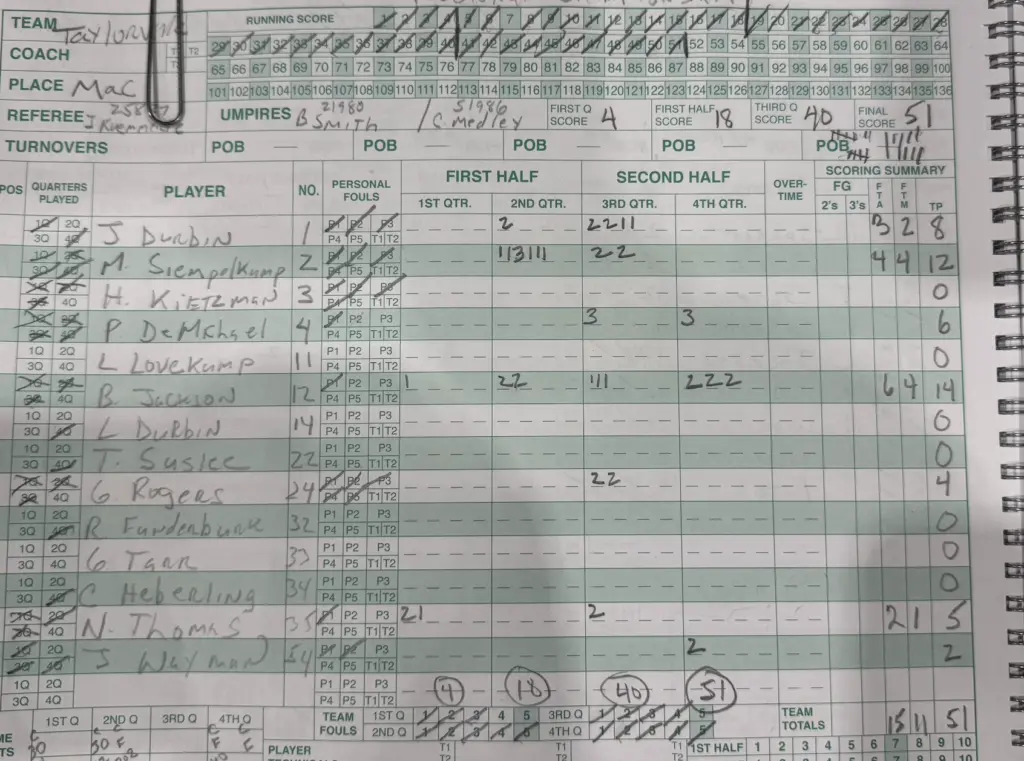 TEAM Taylorville RUNNING SCORE 1 2 3 4 5 6 7 8 9 10 11 12 13 14 15 16 17 18 19 20 21 22 23 24 25 26 27 28
COACH T1 T2 29 30 31 32 33 34 35 36 37 38 39 40 41 42 43 44 45 46 47 48 49 50 51 52 53 54 55 56 57 58 59 60 61 62 63 64
65 66 67 68 69 70 71 72 73 74 75 76 77 78 79 80 81 82 83 84 85 86 87 88 89 90 91 92 93 94 95 96 97 98 99 100
PLACE Mac 101 102 103 104 105 106 107 108 109 110 111 112 113 114 115 116 117 118 119 120 121 122 123 124 125 126 127 128 129 130 131 132 133 134 135 136
REFEREE UMPIRES 21980 B Smith / 51986 C. Medley FIRST Q SCORE 4 FIRST HALF SCORE 18 THIRD Q SCORE 40 FINAL SCORE 51
TURNOVERS POB — POB — POB — POB — POB
POS QUARTERS PLAYED PLAYER NO. PERSONAL FOULS FIRST HALF SECOND HALF OVER-TIME SCORING SUMMARY
1ST QTR. 2ND QTR. 3RD QTR. 4TH QTR. FG 2's 3's FTA FTM TP
1Q 2Q 3Q 4Q J Durbin 1 P1 P2 P3 P4 P5 T1 T2 2 2211 3 2 8
1Q 2Q 3Q 4Q M. Siempelkump 2 P1 P2 P3 P4 P5 T1 T2 113111 22 4 4 12
1Q 2Q 3Q 4Q H. Kietzman 3 P1 P2 P3 P4 P5 T1 T2 0
1Q 2Q 3Q 4Q P DeMichael 4 P1 P2 P3 P4 P5 T1 T2 3 3 6
1Q 2Q 3Q 4Q L Lovekamp 11 P1 P2 P3 P4 P5 T1 T2 0
1Q 2Q 3Q 4Q B. Jackson 12 P1 P2 P3 P4 P5 T1 T2 1 22 111 222 6 4 14
1Q 2Q 3Q 4Q L Durbin 14 P1 P2 P3 P4 P5 T1 T2 0
1Q 2Q 3Q 4Q T. Suslee 22 P1 P2 P3 P4 P5 T1 T2 0
1Q 2Q 3Q 4Q G. Rogers 24 P1 P2 P3 P4 P5 T1 T2 22 4
1Q 2Q 3Q 4Q R Funderburk 32 P1 P2 P3 P4 P5 T1 T2 0
1Q 2Q 3Q 4Q G Tarr 33 P1 P2 P3 P4 P5 T1 T2 0
1Q 2Q 3Q 4Q C Heberling 34 P1 P2 P3 P4 P5 T1 T2 0
1Q 2Q 3Q 4Q N. Thomas 35 P1 P2 P3 P4 P5 T1 T2 21 2 2 1 5
1Q 2Q 3Q 4Q J Wayman 54 P1 P2 P3 P4 P5 T1 T2 2 2
1Q 2Q 3Q 4Q P1 P2 P3 P4 P5 T1 T2 4 18 40 51
1ST Q 2ND Q 3RD Q 4TH Q TEAM FOULS 1ST Q 1 2 3 4 5 3RD Q 1 2 3 4 5 TEAM TOTALS 15 11 51
2ND Q 1 2 3 4 5 4TH Q 1 2 3 4 5
30 30 F F E PLAYER T1 T2 T1 T1 T2 1ST HALF 1 2 3 4 5 6 7 8 9 10